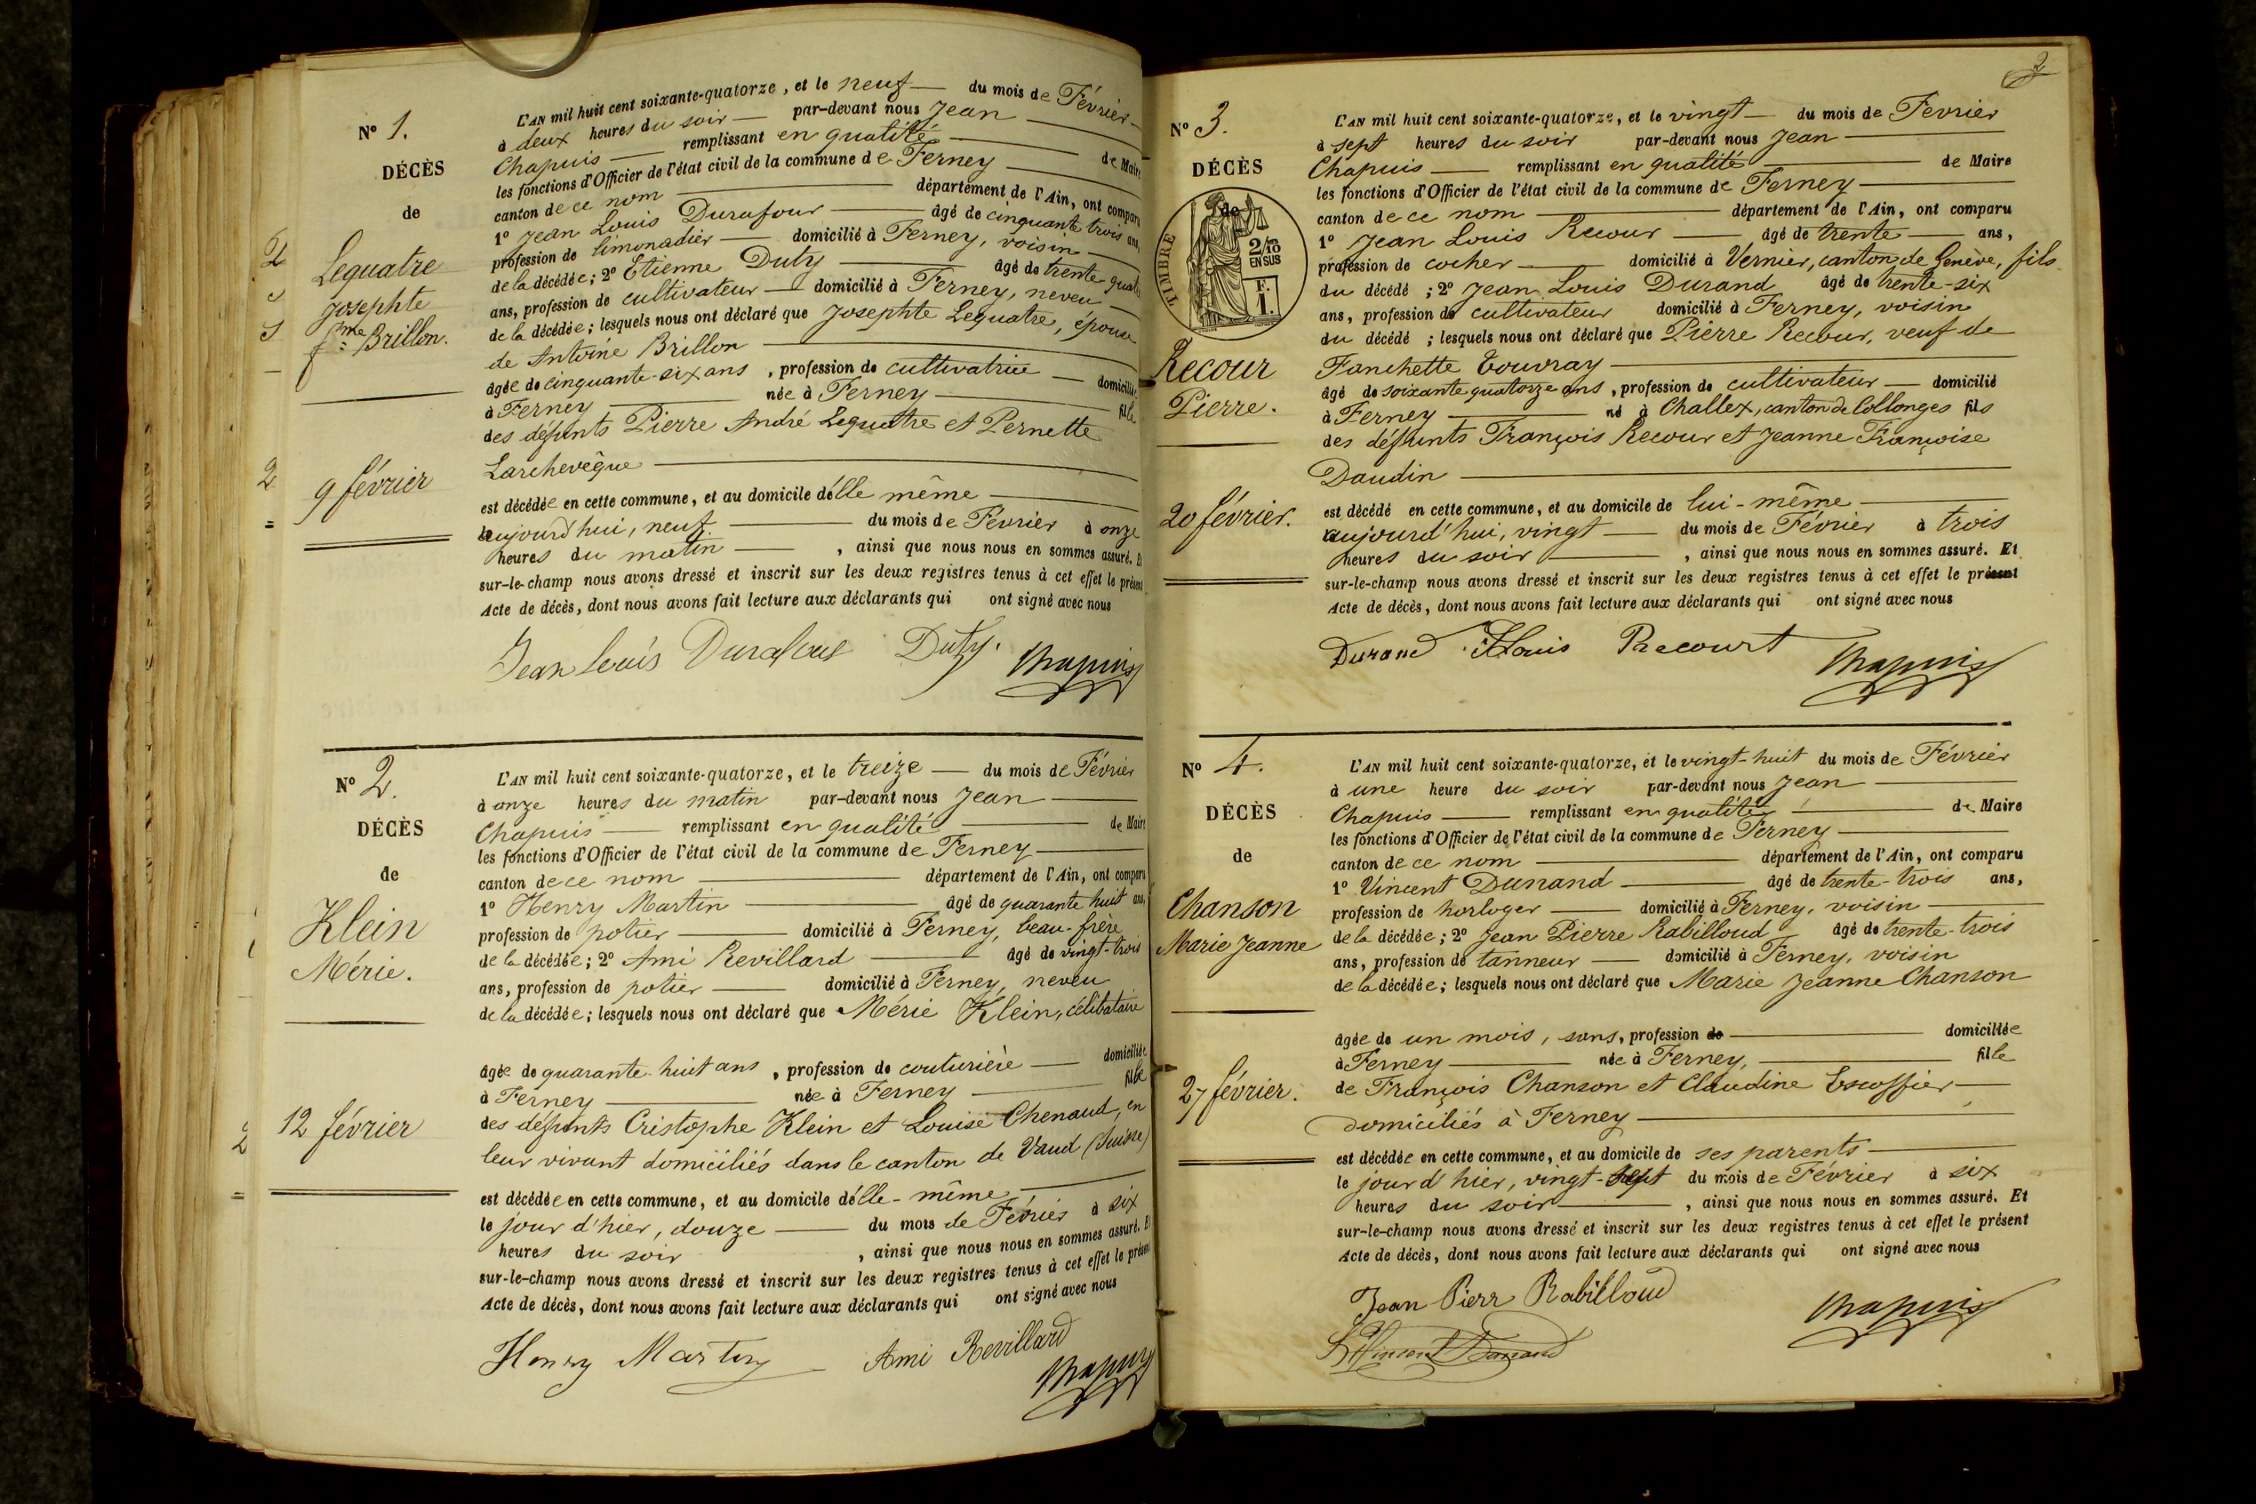 N° 1.
DÉCÈS
de
Lequatre
Josephte
fme Brillon.
9 février
L'AN mil huit cent soixante-quatorze, et le neuf du mois de Février
à deux heures du soir par-devant nous Jean
Chapuis remplissant en qualité de Maire
les fonctions d'Officier de l'état civil de la commune de Ferney
canton de ce nom département de l'Ain, ont comparu
1° Jean Louis Durafour âgé de cinquante trois ans,
profession de limonadier domicilié à Ferney, voisin
de la décédée; 2° Etienne Duty âgé de trente quatre
ans, profession de cultivateur domicilié à Ferney, neveu
de la décédée; lesquels nous ont déclaré que Josephte Lequatre, épouse
de Antoine Brillon
âgée de cinquante-six ans, profession de cultivatrice domiciliée
à Ferney née à Ferney fille
des défunts Pierre André Lequatre et Pernette
Larchevêque
est décédée en cette commune, et au domicile d'elle même
aujourd'hui, neuf du mois de Février à onze
heures du matin, ainsi que nous nous en sommes assuré. Et
sur-le-champ nous avons dressé et inscrit sur les deux registres tenus à cet effet le présent
Acte de décès, dont nous avons fait lecture aux déclarants qui ont signé avec nous
Jean Louis Durafour Duty. Chapuis
N° 2.
DÉCÈS
de
Klein
Mérie.
12 février
L'AN mil huit cent soixante-quatorze, et le treize du mois de Février
à onze heures du matin par-devant nous Jean
Chapuis remplissant en qualité de Maire
les fonctions d'Officier de l'état civil de la commune de Ferney
canton de ce nom département de l'Ain, ont comparu
1° Henry Martin âgé de quarante huit ans,
profession de potier domicilié à Ferney, beau-frère
de la décédée; 2° Ami Revillard âgé de vingt-trois
ans, profession de potier domicilié à Ferney, neveu
de la décédée; lesquels nous ont déclaré que Mérie Klein, célibataire
âgée de quarante-huit ans, profession de couturière domiciliée
à Ferney née à Ferney fille
des défunts Cristophe Klein et Louise Chenaud, en
leur vivant domiciliés dans le canton de Vaud (Suisse)
est décédée en cette commune, et au domicile d'elle-même
le jour d'hier, douze du mois de Février à six
heures du soir, ainsi que nous nous en sommes assuré. Et
sur-le-champ nous avons dressé et inscrit sur les deux registres tenus à cet effet le présent
Acte de décès, dont nous avons fait lecture aux déclarants qui ont signé avec nous
Henry Martin Ami Revillard
Chapuis
2
N° 3.
DÉCÈS
de
TIMBRE
2/10
EN SUS
F.
1.
Recour
Pierre.
20 février.
L'AN mil huit cent soixante-quatorze, et le vingt du mois de Février
à sept heures du soir par-devant nous Jean
Chapuis remplissant en qualité de Maire
les fonctions d'Officier de l'état civil de la commune de Ferney
canton de ce nom département de l'Ain, ont comparu
1° Jean Louis Recour âgé de trente ans,
profession de cocher domicilié à Vernier, canton de Genève, fils
du décédé; 2° Jean Louis Durand âgé de trente-six
ans, profession de cultivateur domicilié à Ferney, voisin
du décédé; lesquels nous ont déclaré que Pierre Recour, veuf de
Fanchette Touvray
âgé de soixante quatorze ans, profession de cultivateur domicilié
à Ferney né à Challex, canton de Collonges fils
des défunts François Recour et Jeanne Françoise
Daudin
est décédé en cette commune, et au domicile de lui-même
aujourd'hui, vingt du mois de Février à trois
heures du soir, ainsi que nous nous en sommes assuré. Et
sur-le-champ nous avons dressé et inscrit sur les deux registres tenus à cet effet le présent
Acte de décès, dont nous avons fait lecture aux déclarants qui ont signé avec nous
Durand Louis Recourt Chapuis
N° 4.
DÉCÈS
de
Chanson
Marie Jeanne
27 février.
L'AN mil huit cent soixante-quatorze, et le vingt-huit du mois de Février
à une heure du soir par-devant nous Jean
Chapuis remplissant en qualité de Maire
les fonctions d'Officier de l'état civil de la commune de Ferney
canton de ce nom département de l'Ain, ont comparu
1° Vincent Dunand âgé de trente-trois ans,
profession de horloger domicilié à Ferney, voisin
de la décédée; 2° Jean Pierre Rabilloud âgé de trente-trois
ans, profession de tanneur domicilié à Ferney, voisin
de la décédée; lesquels nous ont déclaré que Marie Jeanne Chanson
âgée de un mois, sans, profession de domiciliée
à Ferney née à Ferney, fille
de François Chanson et Claudine Escoffier
domiciliés à Ferney
est décédée en cette commune, et au domicile de ses parents
le jour d'hier, vingt-sept du mois de Février à six
heures du soir, ainsi que nous nous en sommes assuré. Et
sur-le-champ nous avons dressé et inscrit sur les deux registres tenus à cet effet le présent
Acte de décès, dont nous avons fait lecture aux déclarants qui ont signé avec nous
Jean Pierr Rabilloud Chapuis
Vincent Dunand